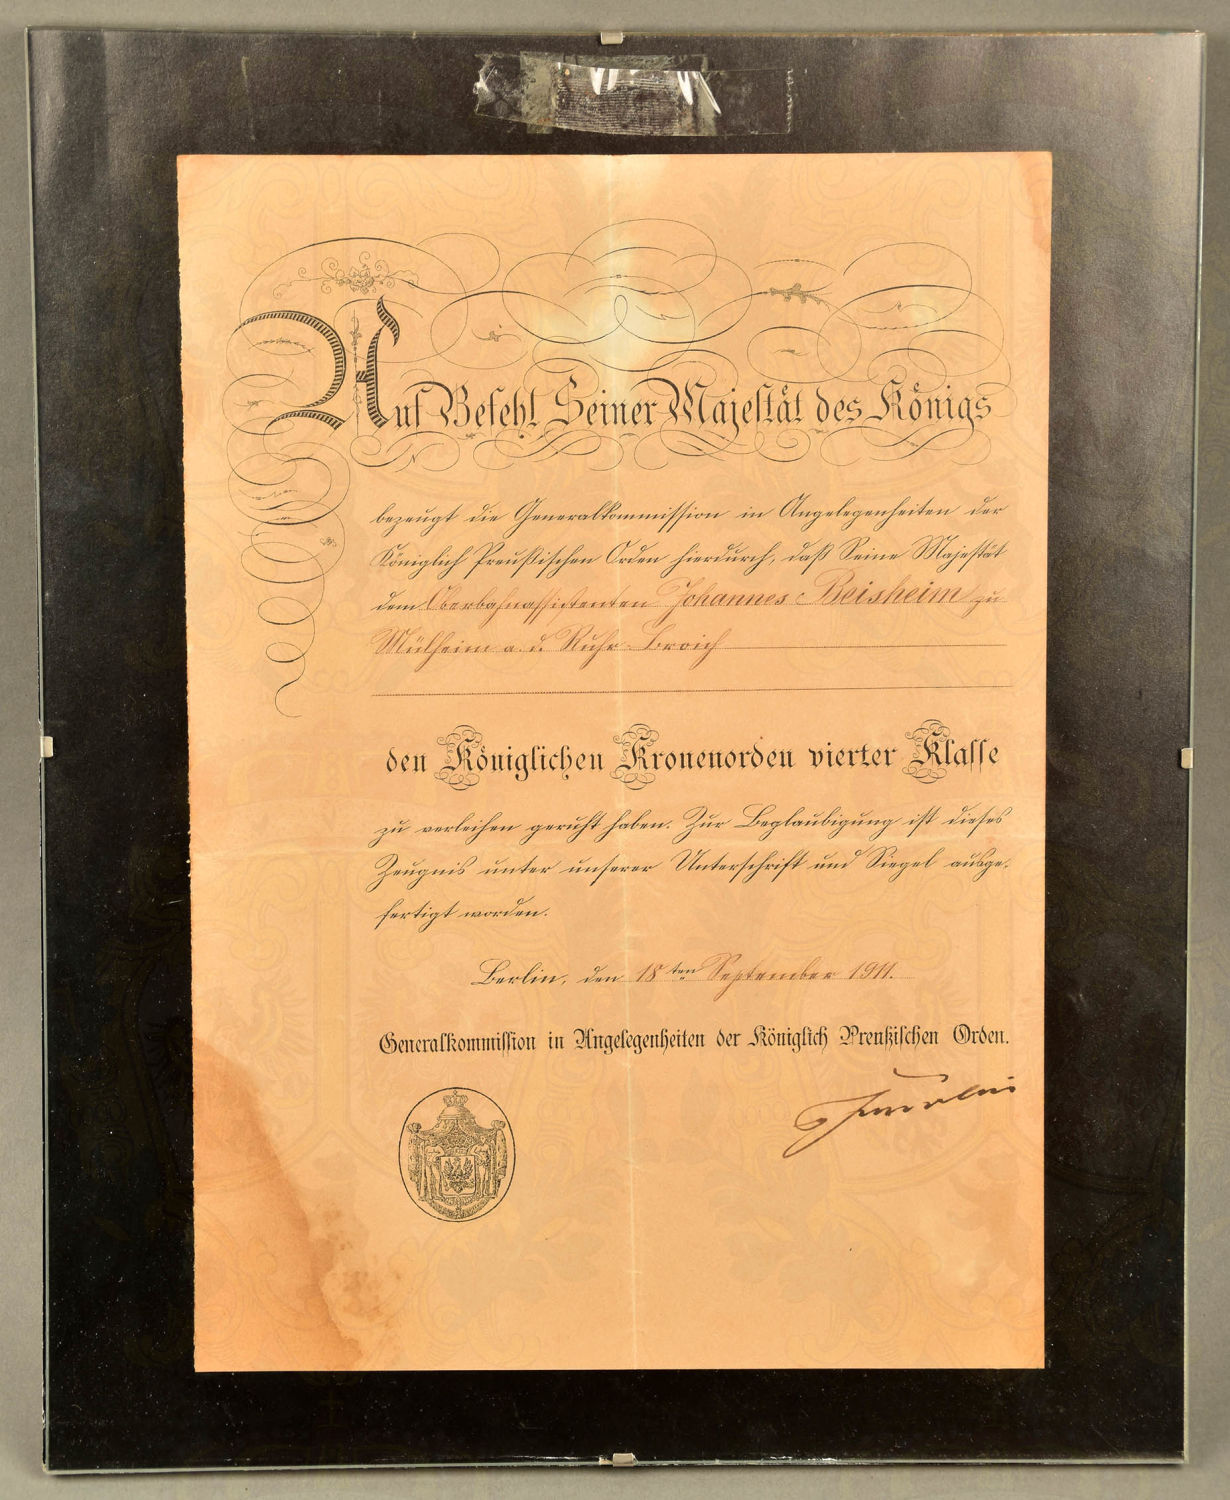 Auf Befehl Seiner Majestät des Königs
bezeugt die Generalkommission in Angelegenheiten der
Königlich Preußischen Orden hierdurch, daß Seine Majestät
dem Oberbahnassistenten Johannes Beisheim zu
Mülheim a. d. Ruhr-Broich
den Königlichen Kronenorden vierter Klasse
zu verleihen geruht haben. Zur Beglaubigung ist dieses
Zeugnis unter unserer Unterschrift und Siegel ausge-
fertigt worden.
Berlin, den 18ten September 1911.
Generalkommission in Angelegenheiten der Königlich Preußischen Orden.